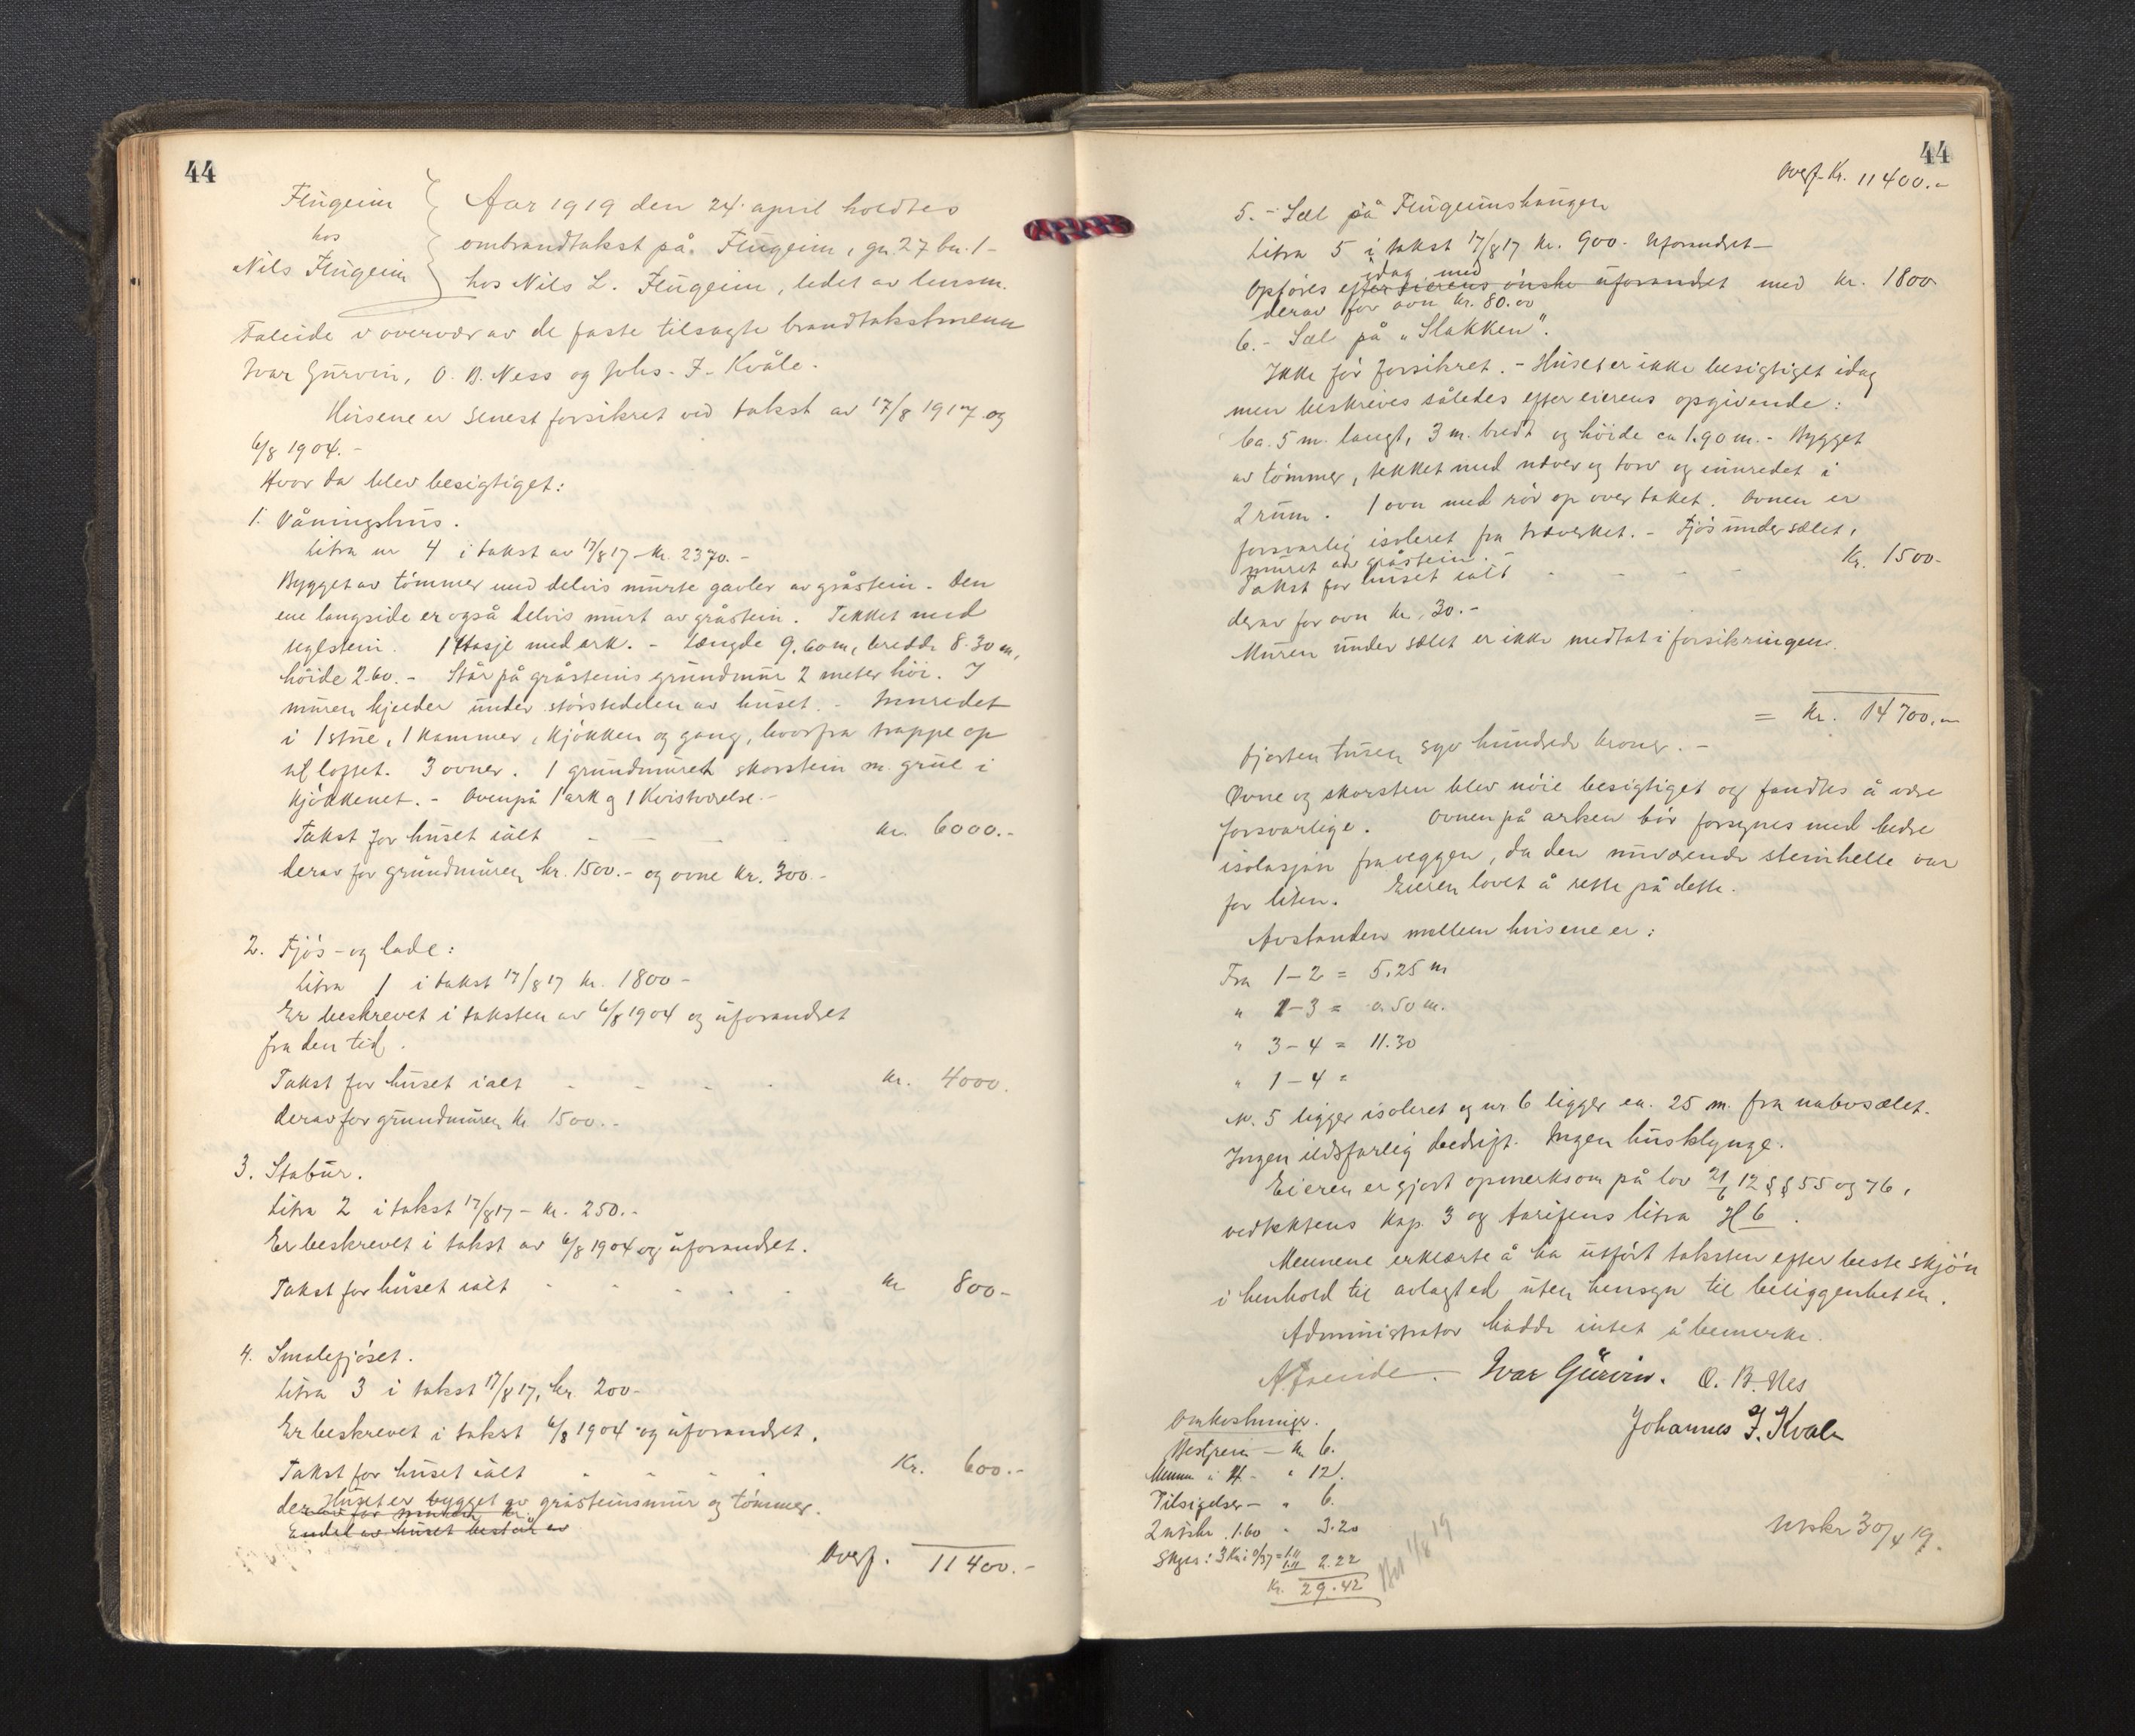 44
Flugeim
hos
Nils Flugeim
Aar 1919 den 24. april holdtes
ombrandtakst på Flugeim, gn. 27 bn. 1 -
hos Nils L. Flugeim, ledet av lensm.
Faleide i overvær av de faste tilsagte brandtakstmenn
Ivar Gurvin, O. B. Ness og Johs. J. Kvåle.
Husene er senest forsikret ved takst av 17/8 1917 og
6/8 1904. -
Hvor da blev besigtiget:
1. Våningshus.
Litra nr 4 i takst av 17/8 17 - kr. 2370. -
Bygget av tömmer med delvis murte gavler av gråstein. Den
ene langside er også delvis murt av gråstein. Tekket med
teglstein. 1 etasje med ark. - Længde 9.60 m, bredde 8.30 m,
höide 2.60. - Står på gråsteins grundmur 2 meter höi. I
muren kjelder under störstedelen av huset. - Innredet
i 1 stue, 1 kammer, kjökken og gang, hvorfra trappe op
til loftet. 3 ovner. 1 grundmuret skorstein m. grue i
kjökkenet. - Ovenpå 1 ark og 1 kvistværelse. -
Takst for huset ialt - - - kr. 6000.-
derav for grundmuren kr. 1500.- og ovne kr. 300.-
2. Fjös- og lade:
Litra 1 i takst 17/8 17 kr. 1800 -
Er beskrevet i taksten av 6/8 1904 og uforandret
fra den tid.
Takst for huset ialt - - - - kr. 4000.
derav for grundmuren kr 1500.-
3. Stabur.
Litra 2 i takst 17/8 17 - kr. 250.-
Er beskrevet i takst av 6/8 1904 og uforandret.
Takst for huset ialt - - - - kr 800-
4. Smalefjöset.
Litra 3 i takst 17/8 17, kr. 200-
Er beskrevet i takst 6/8 1904 og uforandret.
Takst for huset ialt - - - - Kr. 600.-
Huset er bygget av gråsteinsmur og tömmer.
derav for muren kr.
Endel av huset består av
Overf. 11400.-
44
Overf. Kr. 11400.-
5. - Sæl på Flugeimshaugen
Litra 5 i takst 17/8 17 kr. 900.- Uforandret -
idag med
Opföres efter eierens önske uforandret med kr. 1800
derav for ovn kr. 80.00
6. - Sæl på "Slakken".
Ikke för forsikret. - Huset er ikke besigtiget idag
men beskrives således efter eierens opgivende:
Ca. 5 m. langt, 3 m. bredt og höide ca 1.90 m. - Bygget
av tömmer, tekket med næver og torv og innredet i
2 rum. 1 ovn med rör op over taket. Ovnen er
forsvarlig isoleret fra træverket. - Fjös under sælet,
muret av gråstein. -
Takst for huset ialt - - - - Kr. 1500-
derav for ovn kr. 30.-
Muren under sælet er ikke medtat i forsikringen.
= Kr. 14700.-
Fjorten tusen syv hundrede kroner. -
Ovne og skorsten blev nöie besigtiget og fandtes å være
forsvarlige. Ovnen på arken bör forsynes med bedre
isolasjon fra veggen, da den nuværende steinhelle var
for liten. Eieren lovet å rette på dette.
Avstanden mellem husene er:
Fra 1-2 = 5.25 m
" 2-3 = 0.50 m.
" 3-4 = 11.30
" 1-4 =
Nr. 5 ligger isoleret og nr 6 ligger ca. 25 m. fra nabosælet.
Ingen ildsfarlig bedrift. Ingen husklynge.
Eieren er gjort opmerksom på lov 21/6 12 §§ 55 og 76,
vedtektens kap. 3 og tarifens litra H 6.
Mennene erklærte å ha utfört taksten efter beste skjön
i henhold til avlagt ed uten hensyn til beliggenheten.
Administrator hadde intet å bemerke.
A. Faleide. Ivar Gurvin. O. B. Nes
Johannes J. Kvale
Omkostninger.
Bestyrer - kr 6.
Menn à 4 - " 12.
Tilsigelser - " 6.
2 utskr. 1.60 " 3.20
Skyss: 3 Km à 0/37 = 1.11
1.11 2.22
Kr. 29.42
Utskr 30/4 19.